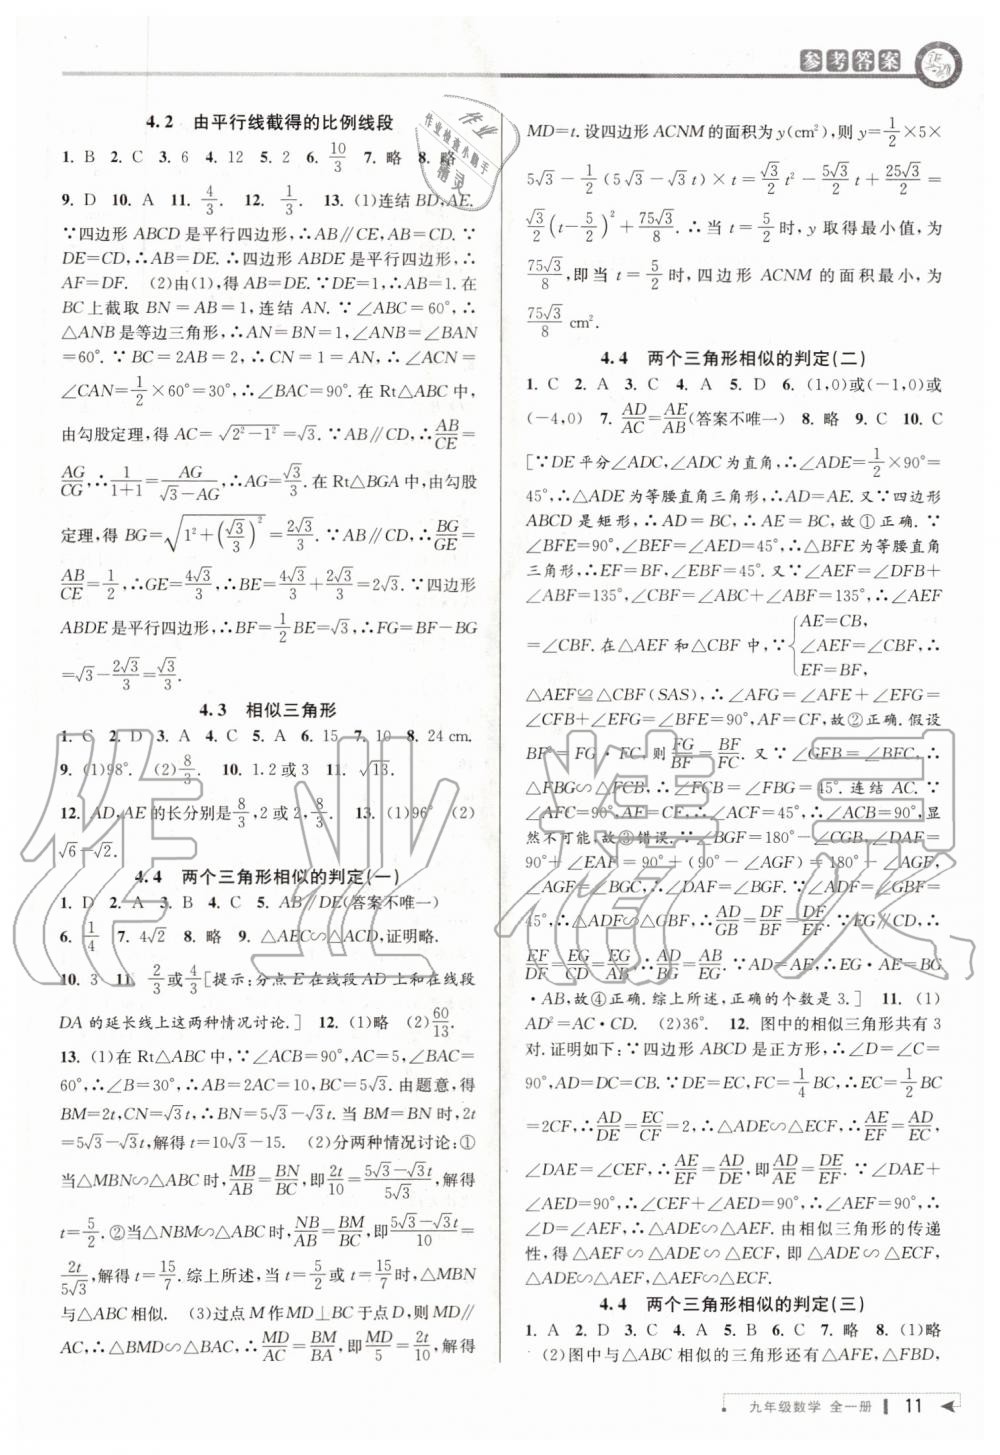 参考答案
4.2 由平行线截得的比例线段
1. B 2. C 3. 6 4. 12 5. 2 6. 10/3 7. 略 8. 略
9. D 10. A 11. 4/3. 12. 1/3. 13. (1)连结 BD,AE.
∵四边形 ABCD 是平行四边形,∴AB∥CE,AB=CD. ∵
DE=CD,∴AB=DE. ∴四边形 ABDE 是平行四边形,∴
AF=DF. (2)由(1),得 AB=DE. ∵DE=1,∴AB=1. 在
BC 上截取 BN=AB=1,连结 AN. ∵∠ABC=60°,∴
△ANB 是等边三角形,∴AN=BN=1,∠ANB=∠BAN
=60°. ∵BC=2AB=2,∴CN=1=AN,∴∠ACN=
∠CAN=1/2×60°=30°,∴∠BAC=90°. 在 Rt△ABC 中,
由勾股定理,得 AC=√(2²-1²)=√3. ∵AB∥CD,∴AB/CE=
AG/CG,∴1/(1+1)=AG/(√3-AG),∴AG=√3/3. 在 Rt△BGA 中,由勾股
定理,得 BG=√(1²+(√3/3)²)=2√3/3. ∵AB∥CD,∴BG/GE=
AB/CE=1/2,∴GE=4√3/3,∴BE=4√3/3+2√3/3=2√3. ∵四边形
ABDE 是平行四边形,∴BF=1/2BE=√3,∴FG=BF-BG
=√3-2√3/3=√3/3.
4.3 相似三角形
1. C 2. D 3. A 4. C 5. A 6. 15 7. 10 8. 24 cm.
9. (1)98°. (2)8/3. 10. 1.2 或 3 11. √13.
12. AD,AE 的长分别是8/3,2 或 2,8/3. 13. (1)96° (2)
√6-√2.
4.4 两个三角形相似的判定(一)
1. D 2. A 3. B 4. C 5. AB∥DE(答案不唯一)
6. 1/4 7. 4√2 8. 略 9. △AEC∽△ACD,证明略.
10. 3 11. 2/3或4/3[提示:分点 E 在线段 AD 上和在线段
DA 的延长线上这两种情况讨论.] 12. (1)略 (2)60/13.
13. (1)在 Rt△ABC 中,∵∠ACB=90°,AC=5,∠BAC=
60°,∴∠B=30°,∴AB=2AC=10,BC=5√3. 由题意,得
BM=2t,CN=√3t,∴BN=5√3-√3t. 当 BM=BN 时,2t
=5√3-√3t,解得 t=10√3-15. (2)分两种情况讨论:①
当△MBN∽△ABC 时,MB/AB=BN/BC,即2t/10=(5√3-√3t)/5√3,解得
t=5/2. ②当△NBM∽△ABC 时,NB/AB=BM/BC,即(5√3-√3t)/10=
2t/5√3,解得 t=15/7. 综上所述,当 t=5/2或 t=15/7时,△MBN
与△ABC 相似. (3)过点 M 作MD⊥BC 于点 D,则 MD∥
AC,∴△BMD∽△BAC,∴MD/AC=BM/BA,即MD/5=2t/10,解得
MD=t. 设四边形 ACNM 的面积为 y(cm²),则 y=1/2×5×
5√3-1/2(5√3-√3t)×t=√3/2t²-5√3/2t+25√3/2=
√3/2(t-5/2)²+75√3/8. ∴当 t=5/2时,y 取得最小值,为
75√3/8,即当 t=5/2时,四边形 ACNM 的面积最小,为
75√3/8 cm².
4.4 两个三角形相似的判定(二)
1. C 2. A 3. C 4. A 5. D 6. (1,0)或(-1,0)或
(-4,0) 7. AD/AC=AE/AB(答案不唯一) 8. 略 9. C 10. C
[∵DE 平分∠ADC,∠ADC 为直角,∴∠ADE=1/2×90°=
45°,∴△ADE 为等腰直角三角形,∴AD=AE. 又∵四边形
ABCD 是矩形,∴AD=BC,∴AE=BC,故①正确. ∵
∠BFE=90°,∠BEF=∠AED=45°,∴△BFE 为等腰直角
三角形,∴EF=BF,∠EBF=45°. 又∵∠AEF=∠DFB+
∠ABF=135°,∠CBF=∠ABC+∠ABF=135°,∴∠AEF
=∠CBF. 在△AEF 和△CBF 中,∵{AE=CB, ∠AEF=∠CBF, EF=BF, ∴
△AEF≌△CBF(SAS),∴∠AFG=∠AFE+∠EFG=
∠CFB+∠EFG=∠BFE=90°,AF=CF,故②正确. 假设
BF²=FG·FC. 则FG/BF=BF/FC. 又∵∠GFB=∠BFC,∴
△FBG∽△FCB,∴∠FCB=∠FBG=45°. 连结 AC. ∵
∠AFC=90°,AF=CF,∴∠ACF=45°,∴∠ACB=90°,显
然不可能,故③错误. ∵∠BGF=180°-∠CGB,∠DAF=
90°+∠EAF=90°+(90°-∠AGF)=180°-∠AGF,
∠AGF=∠BGC,∴∠DAF=∠BGF. ∵∠ADF=∠GBF=
45°,∴△ADF∽△GBF,∴AD/GB=DF/BF=DF/EF. ∵EG∥CD,∴
EF/DF=EG/CD=EG/AB,∴AD/GB=AB/EG. ∵AD=AE,∴EG·AE=BG
·AB,故④正确. 综上所述,正确的个数是 3.] 11. (1)
AD²=AC·CD. (2)36°. 12. 图中的相似三角形共有 3
对. 证明如下:∵四边形 ABCD 是正方形,∴∠D=∠C=
90°,AD=DC=CB. ∵DE=CE,FC=1/4BC,∴EC=1/2BC
=2CF,∴AD/DE=EC/CF=2,∴△ADE∽△ECF,∴AE/EF=AD/EC,
∠DAE=∠CEF,∴AE/EF=AD/DE,即AD/AE=DE/EF. ∵∠DAE+
∠AED=90°,∴∠CEF+∠AED=90°,∴∠AEF=90°,∴
∠D=∠AEF,∴△ADE∽△AEF. 由相似三角形的传递
性,得△ADE∽△AEF∽△ECF,即△ADE∽△ECF,
△ADE∽△AEF,△AEF∽△ECF.
4.4 两个三角形相似的判定(三)
1. A 2. D 3. C 4. C 5. B 6. C 7. 略 8. (1)略
(2)图中与△ABC 相似的三角形还有△AFE,△FBD,
九年级数学 全一册 11
作业精灵
作业检查小助手
作业精灵